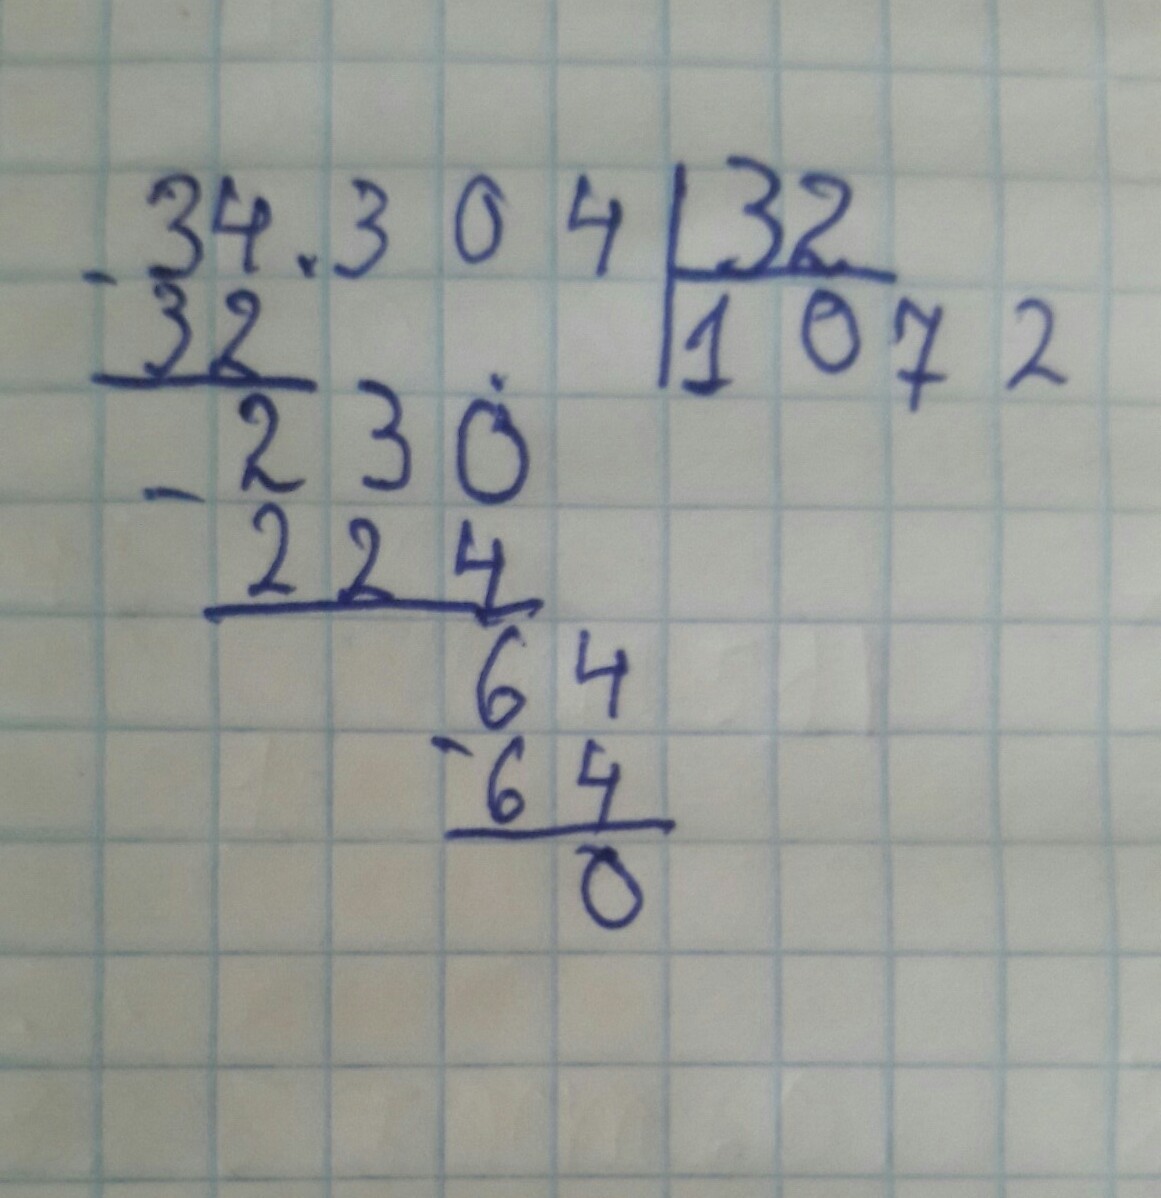 34.304 | 32
- 32 | 1072
230
- 224
64
- 64
0